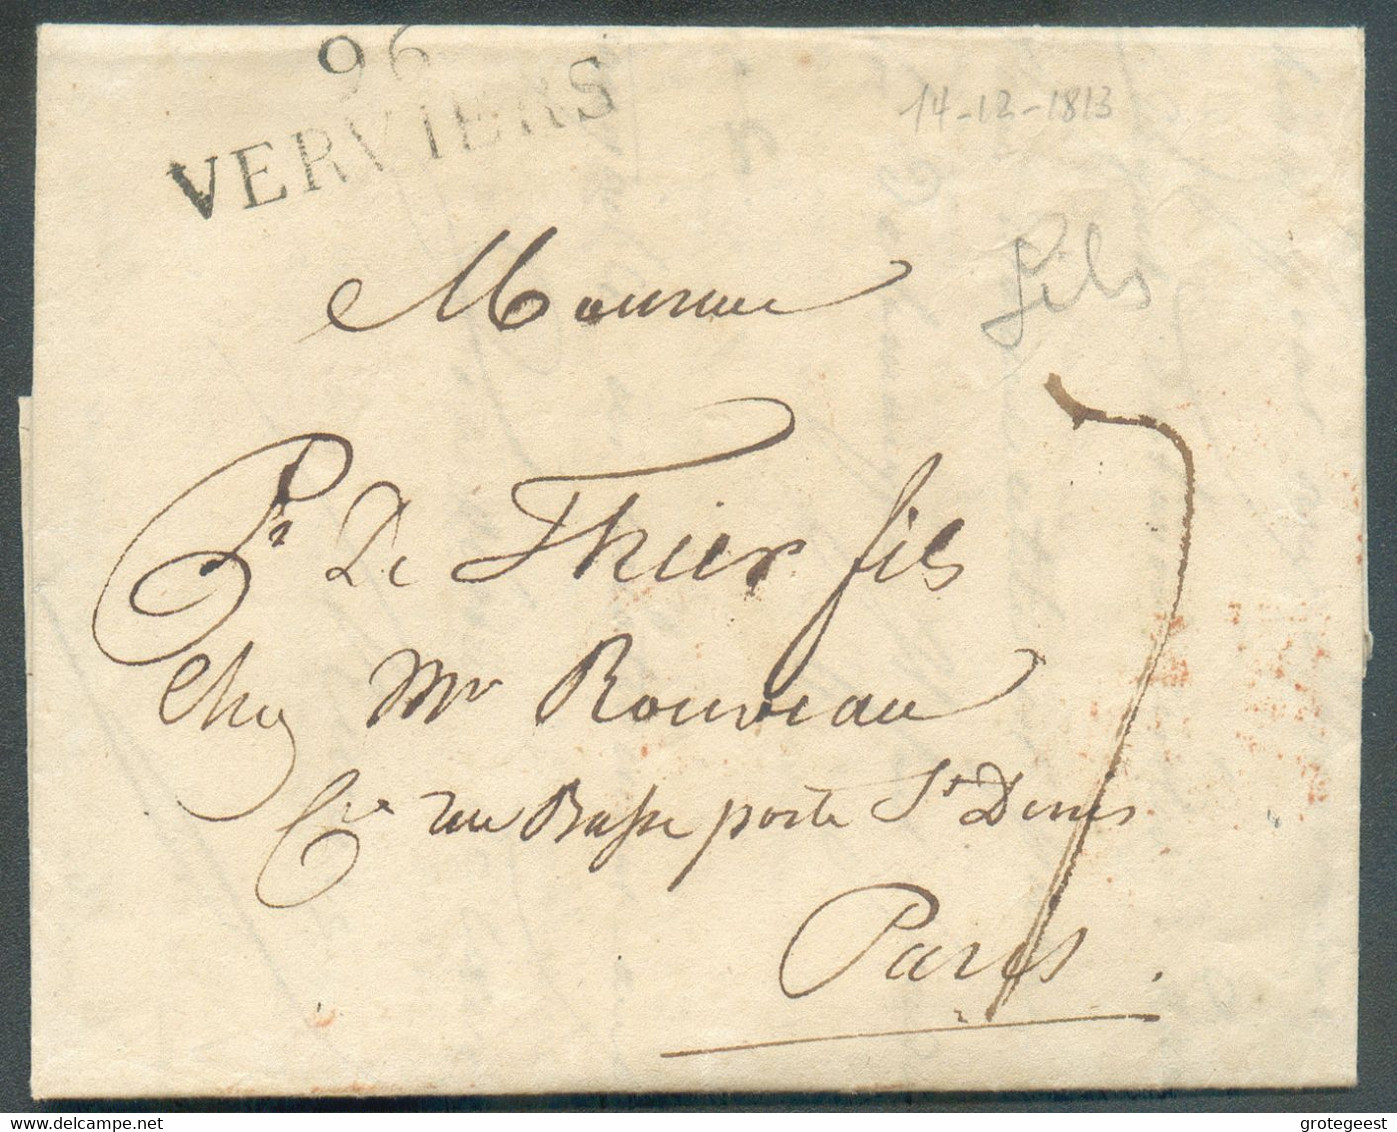 96
VERVIERS
14-12-1813
Monsieur
fils
7
Pr De Thier fils
Chez Mr Rouveau
Cie rue Basse porte St Denis
Paris.
delcampe.net
grotegeest